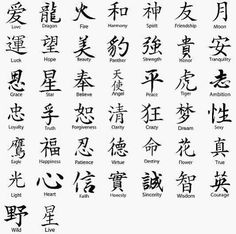 爱 龍 火 和 神 友 月
Love Dragon Fire Harmony Spirit Friendship Moon
運 望 美 豹 強 貴 安
Luck Hope Beauty Panther Strength Honor Tranquility
恩 星 奉 天使 平 虎 志
Grace Star Believe Angel Peace Tiger Ambition
忠 孚 恕 清 狂 夢 性
Loyalty Truth Forgiveness Clarity Crazy Dream Sexy
鷹 福 忍 德 命 花 真
Eagle Happiness Patience Virtue Destiny Flower True
光 心 信 實 誠 智 英
Light Heart Faith Honesty Sincerity Wisdom Courage
野 星
Wild Live